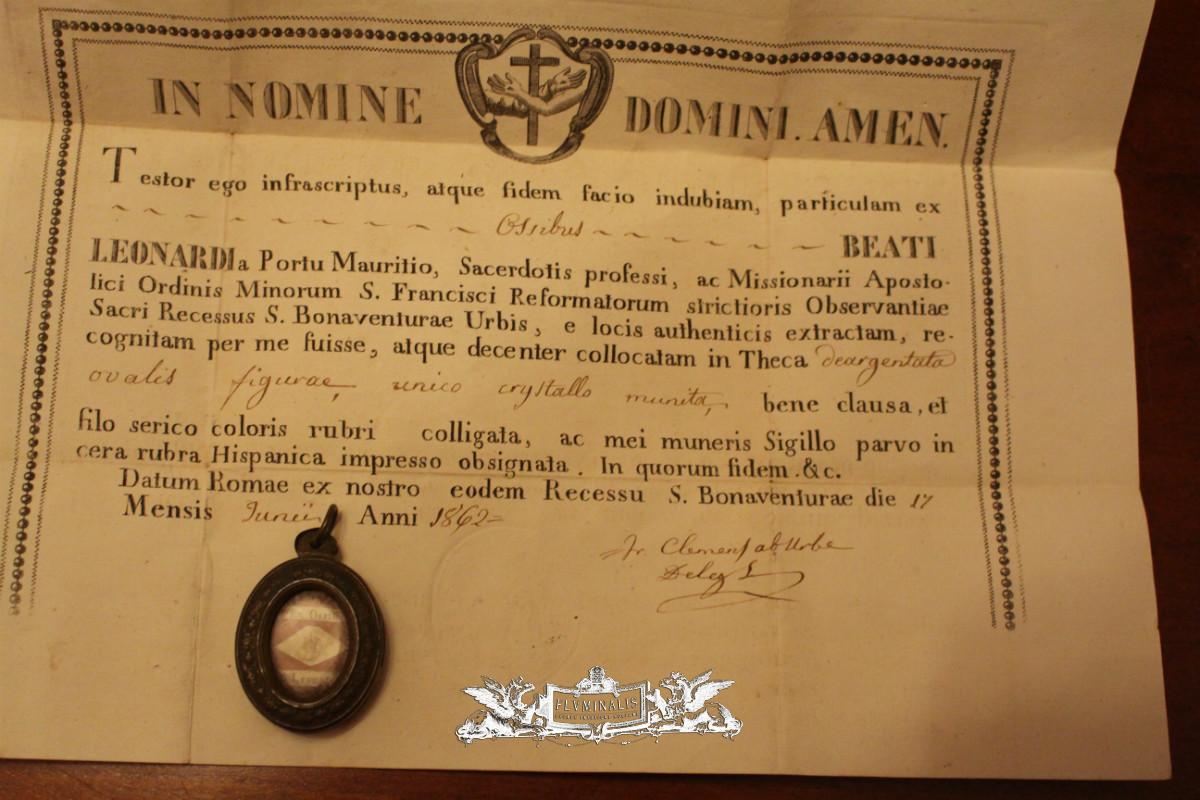 IN NOMINE DOMINI. AMEN.
Testor ego infrascriptus, atque fidem facio indubiam, particulam ex
Ossibus BEATI
LEONARDI a Portu Mauritio, Sacerdotis professi, ac Missionarii Aposto-
lici Ordinis Minorum S. Francisci Reformatorum strictioris Observantiae
Sacri Recessus S. Bonaventurae Urbis, e locis authenticis extractam, re-
cognitam per me fuisse, atque decenter collocatam in Theca deargentata
ovalis figurae, unico crystallo munita, bene clausa, et
filo serico coloris rubri colligata, ac mei muneris Sigillo parvo in
cera rubra Hispanica impresso obsignata. In quorum fidem &c.
Datum Romae ex nostro eodem Recessu S. Bonaventurae die 17
Mensis Junii Anni 1862=
Fr. Clemens ab Urbe
FLVMINALIS